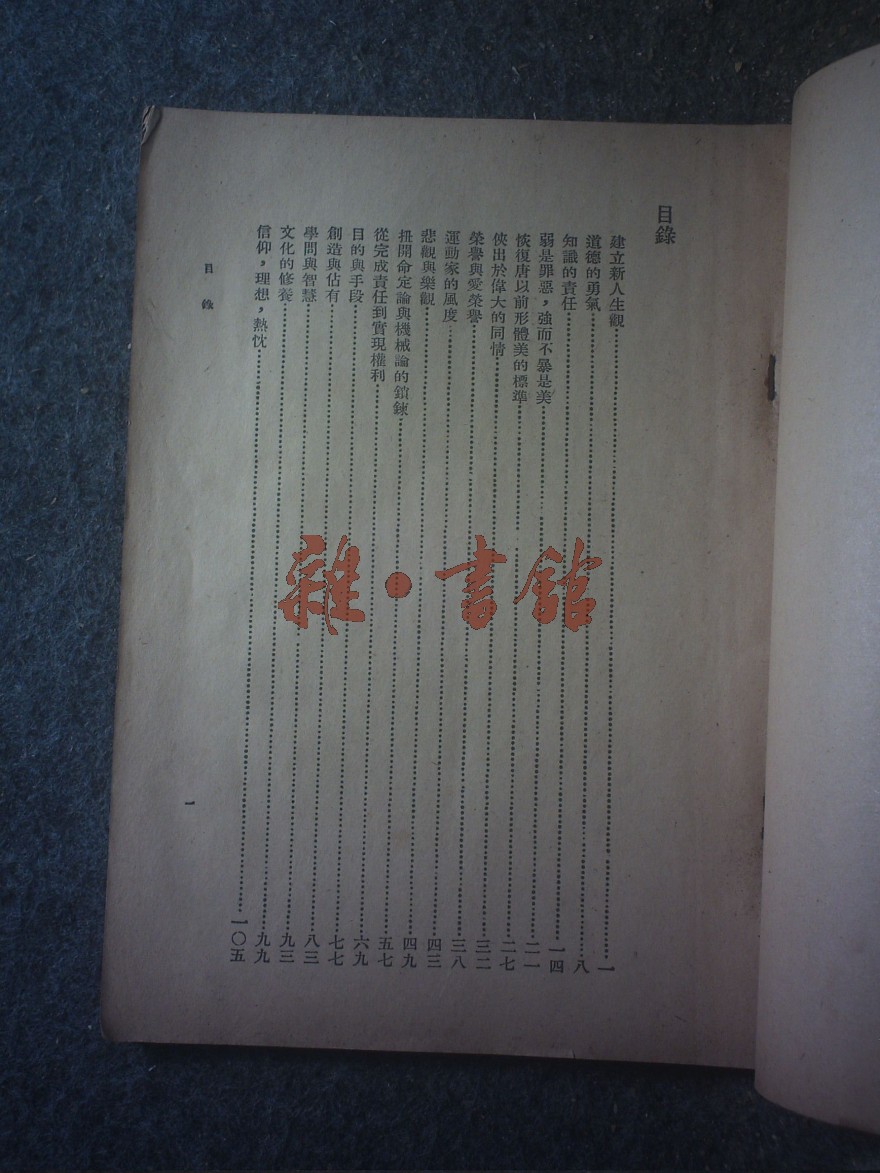 目錄
建立新人生觀……一
道德的勇氣……八
知識的責任……一四
弱是罪惡，強而不暴是美……二一
恢復唐以前形體美的標準……二七
俠出於偉大的同情……三二
榮譽與愛榮譽……三八
運動家的風度……四三
悲觀與樂觀……四九
扭開命定論與機械論的鎖鍊……五七
從完成責任到實現權利……六九
目的與手段……七七
創造與佔有……八三
學問與智慧……九三
文化的修養……九九
信仰，理想，熱忱……一〇五
目錄
一
雜·書館